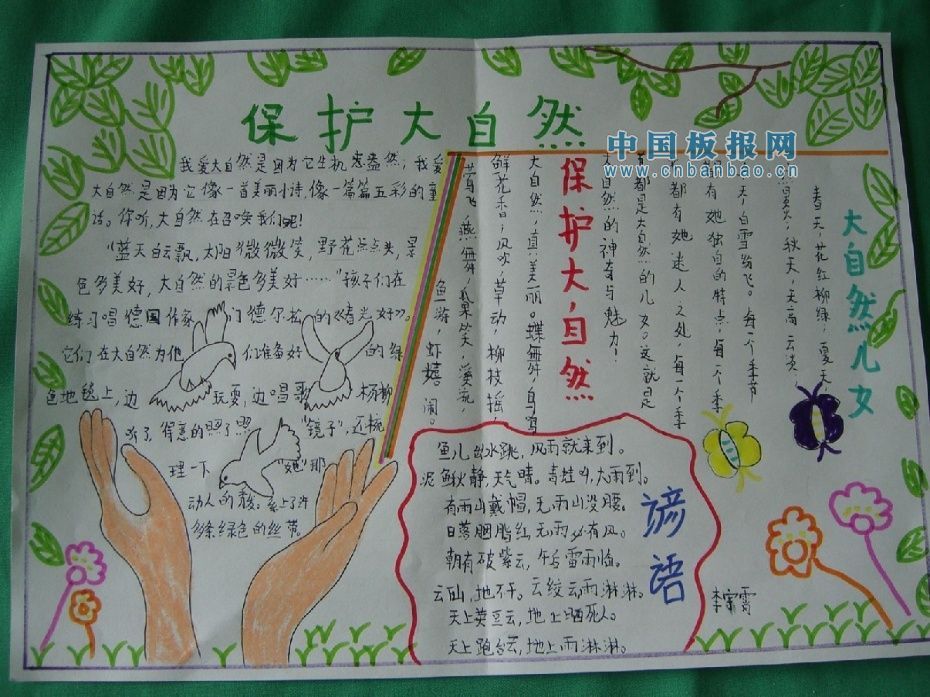 保护大自然
中国板报网
www.cnbanbao.cn
我爱大自然是因为它生机盎然；我爱
大自然是因为它像一首美丽小诗,像一篇篇五彩的童
话。你听,大自然在召唤我们呢！
“蓝天白云飘,太阳微微笑,野花点点头,景
色多美好,大自然的景色多美好……”孩子们在
练习唱德国作家 门德尔松的《春光好》。
它们在大自然为他 们准备好 的绿
色地毯上,边 玩耍,边唱歌 杨柳
听了,得意的照了照 “镜子”,还梳
理一下 “她”那
动人的 系上了
多条绿色的丝带。
大自然儿女
春天,花红柳绿 夏天
秋天,天高云淡,
天,白雪纷飞。每一个季节
有她独自的特点,每一个季
都有她迷人之处,每一个季
都是大自然的儿女。这就是
大自然的神奇与魅力！
保护大自然
大自然,真美丽。蝶舞,鸟鸣
鲜花香,风吹,草动,柳枝摇
莺飞,燕舞,瓜果笑,
鱼游 虾嬉闹。
谚语
鱼儿出水跳,风雨就来到。
泥鳅静,天气晴。青蛙叫,大雨到。
有雨山戴帽,无雨山没腰。
日落胭脂红,无雨必有风。
朝有破紫云,午后雷雨临。
云山,地不干。云绞云,雨淋淋。
天上黄豆云,地上晒死人。
天上跑台云,地上雨淋淋。